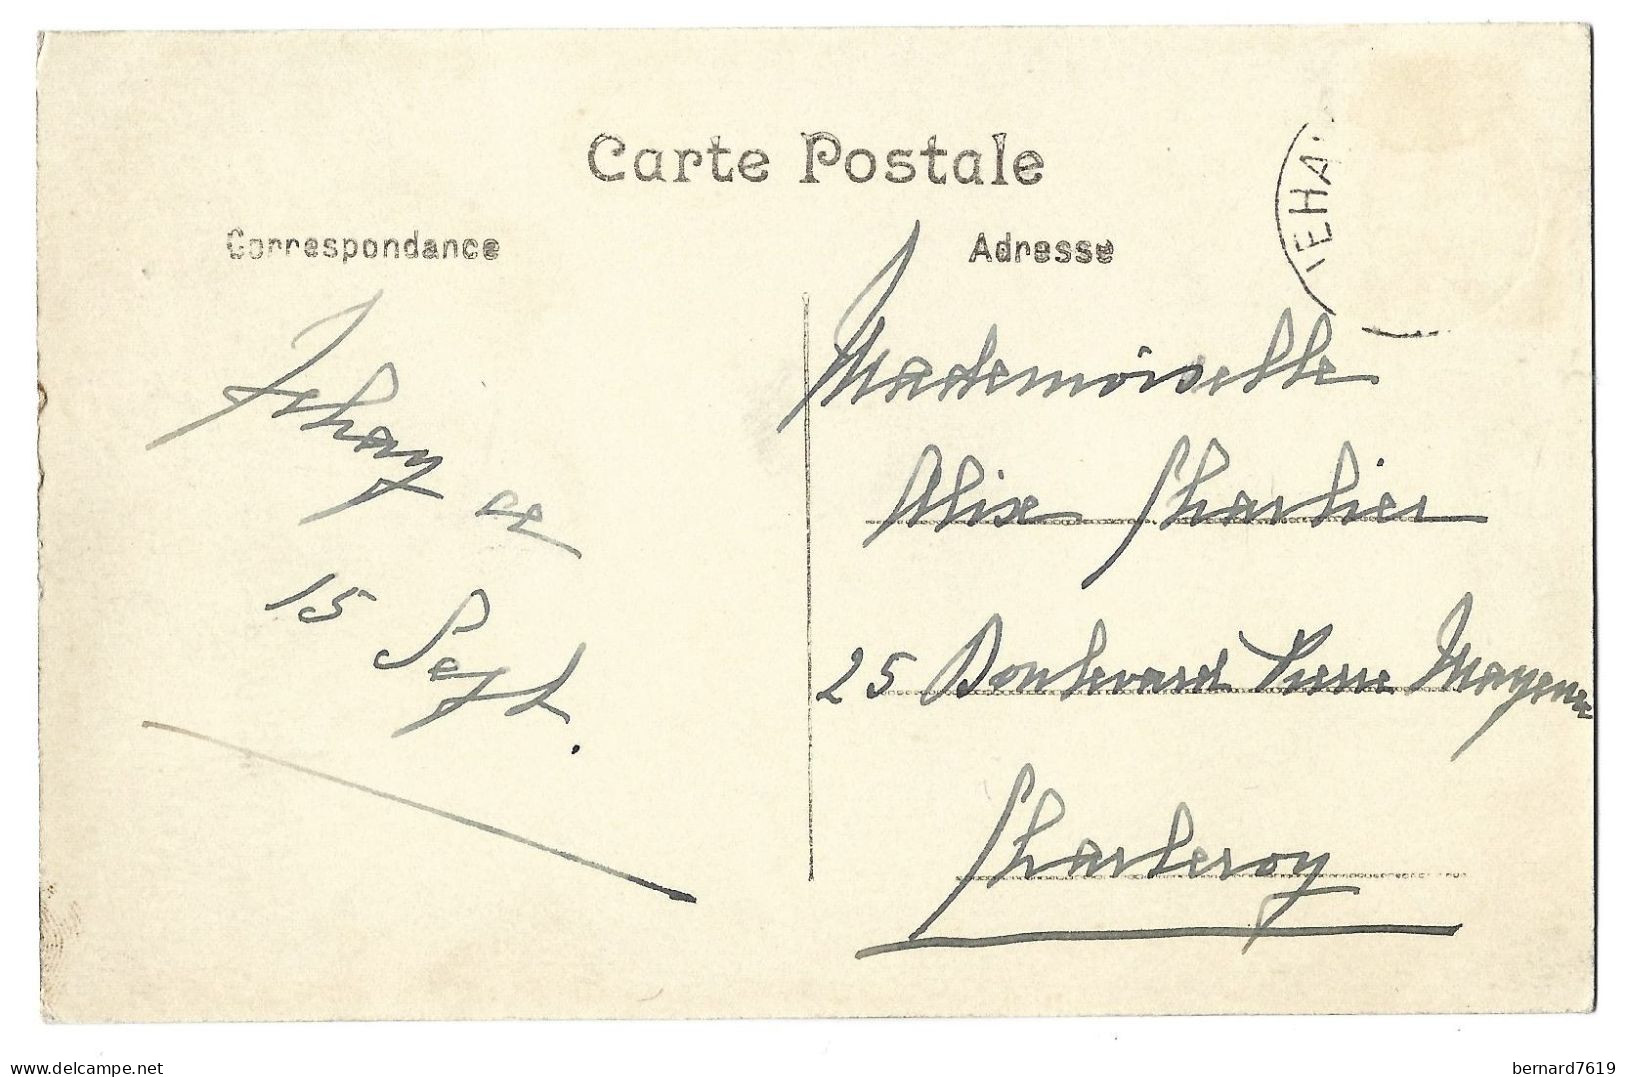 Carte Postale
Correspondance
Adresse
JEHA
Jehay ce
15 Sept.
Mademoiselle
Alix Charlier
25 Boulevard Pierre Mayence
Charleroy
delcampe.net
bernard7619